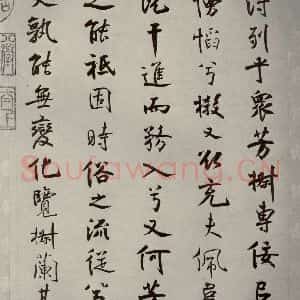 得列乎眾芳椒專佞以
慢慆兮樧又欲充夫佩
既干進而務兮又何芳
之能祗固時俗之流從兮
又孰能無變化覽椒蘭其
Shufawang.CN